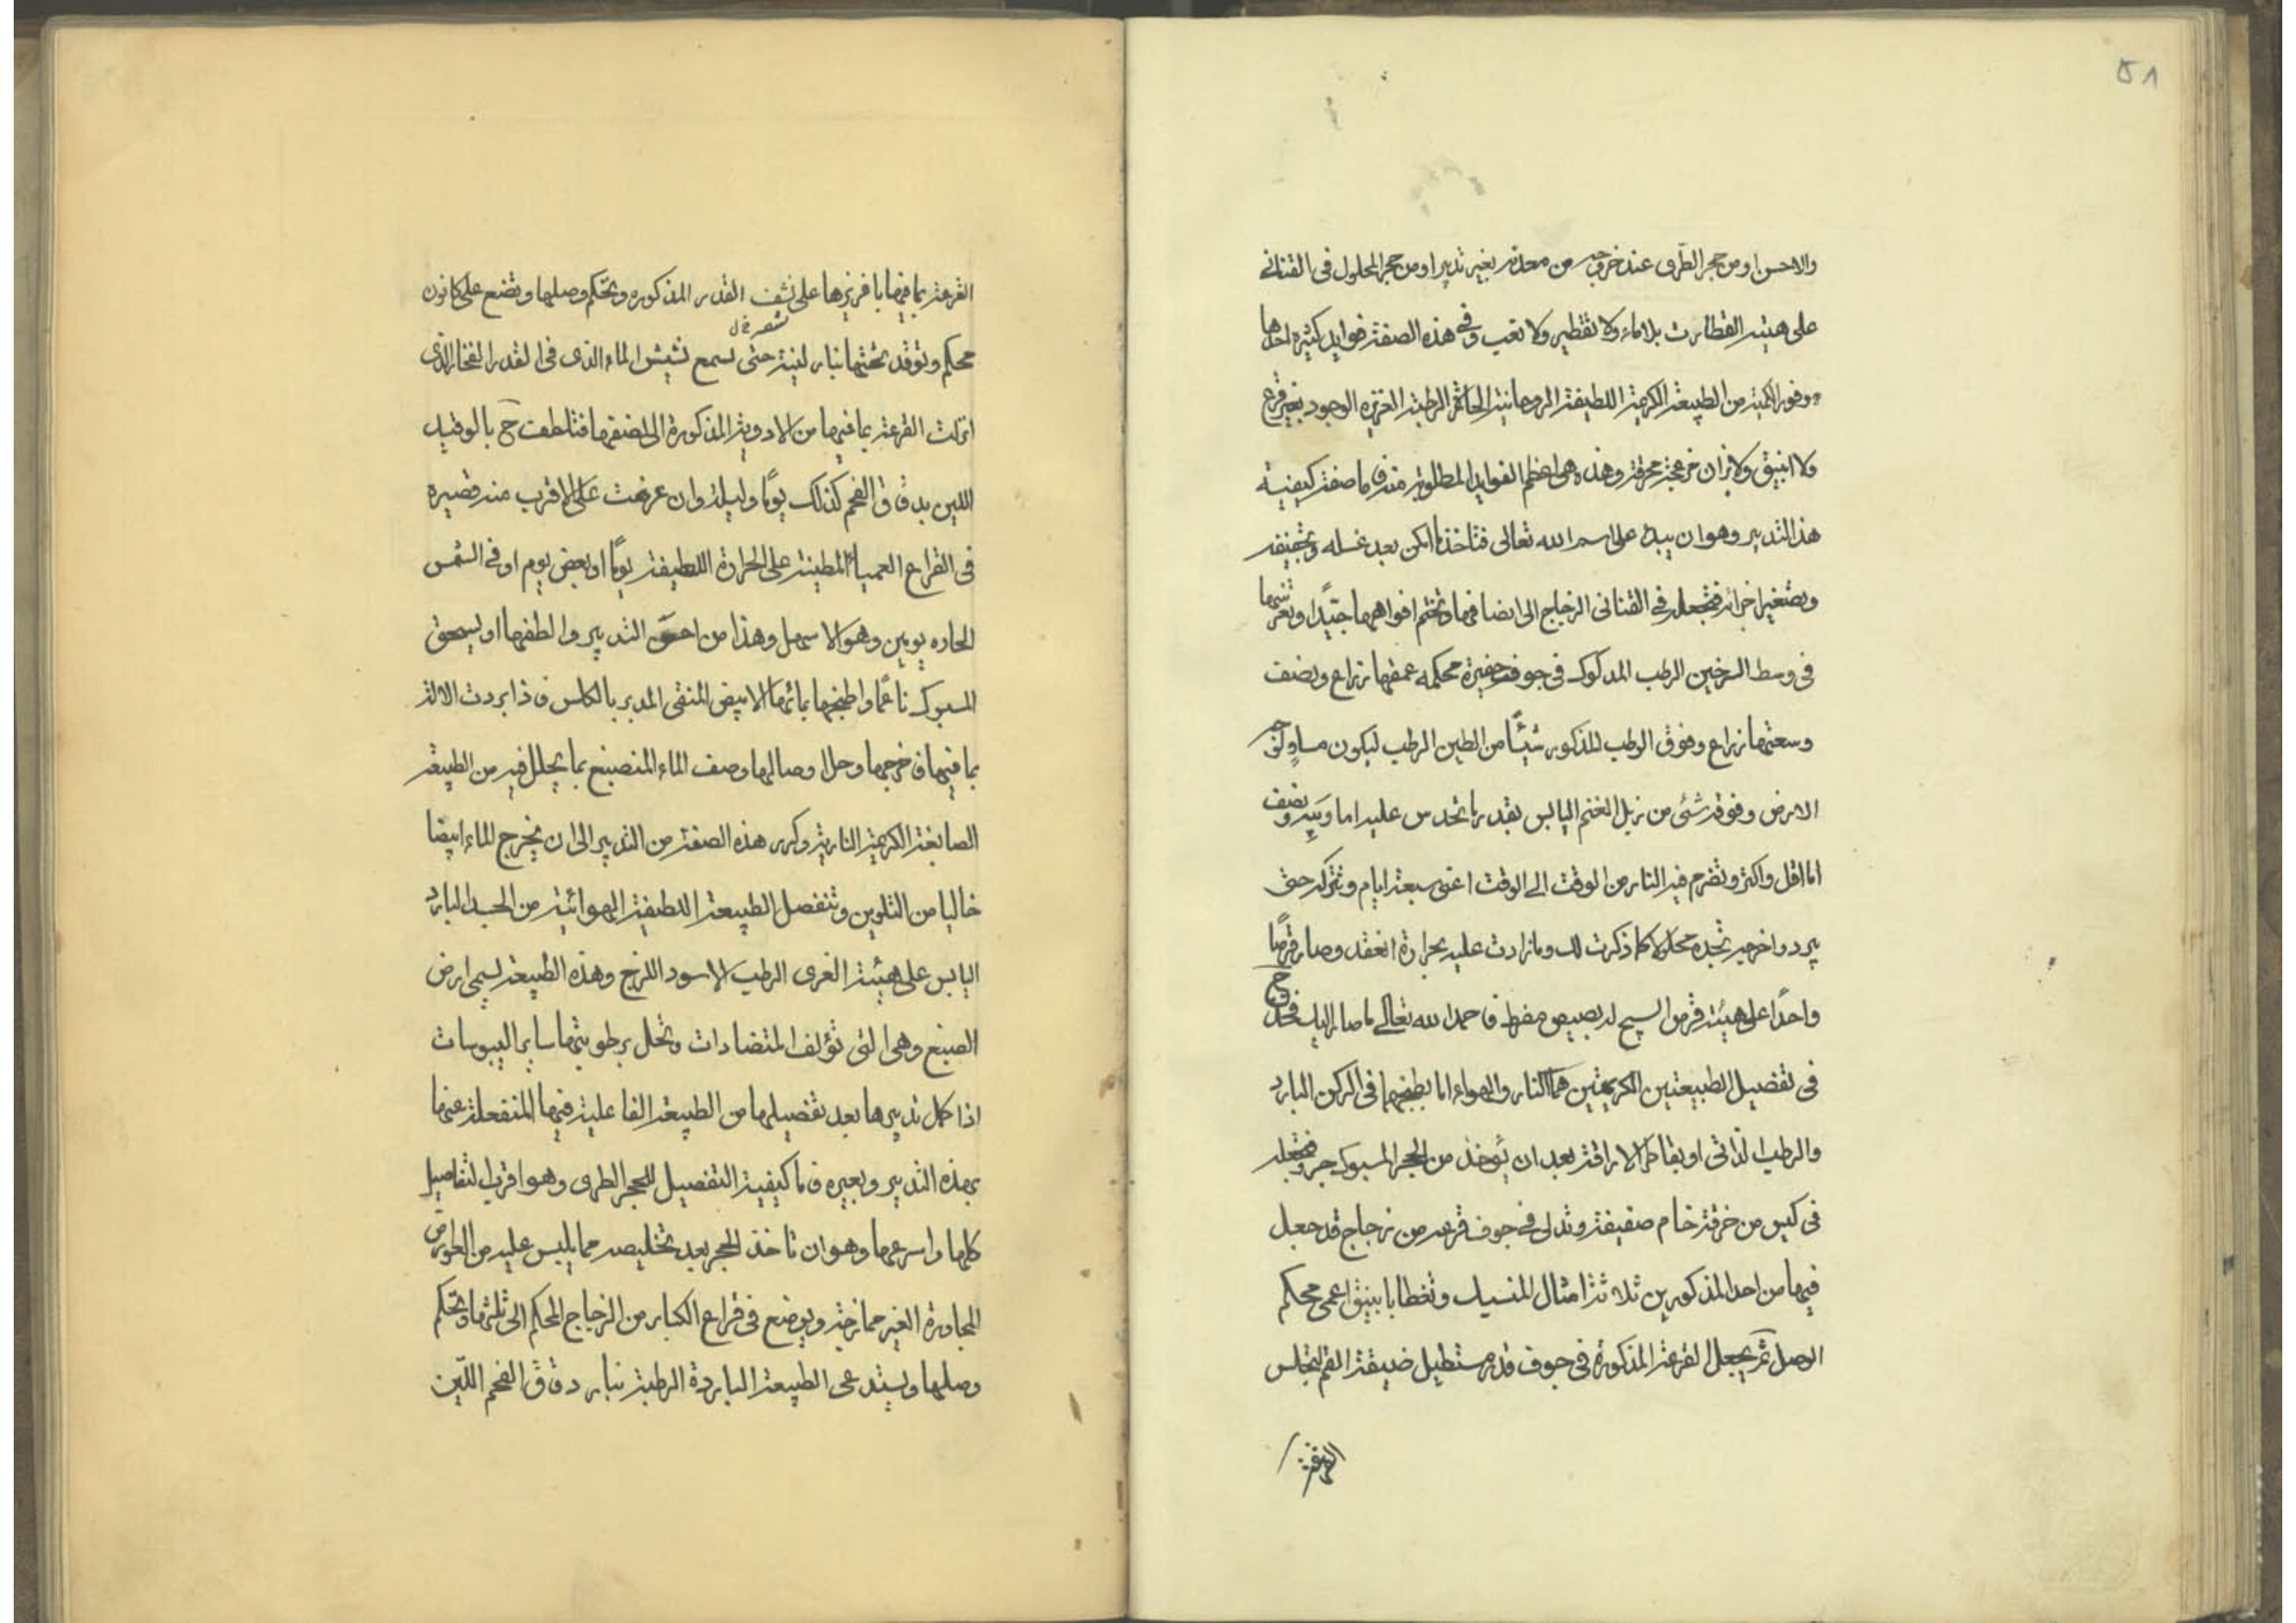 ٥٨
والاحسن او من حجر الطرى عند خروجه من معدنه بغير تدبير او من حجر المحلول فى القنانى
على هيئة القطارت بلا ماء ولا تقطير ولا تعب وفى هذه الصفة فوايد كثيرة احدها
وفور الكمية من الطبيعة الكريمة اللطيفة الروحانية الحارة الرطبة العزيزه الوجود بغير قرع
ولا انبيق ولا نيران مزعجة محرقة وهذه هى اعظم الفوايد المطلوبة منه فاما صفة كيفية
هذ التدبير وهو ان يبدا على اسم الله تعالى فتاخذ بعد غسله وتجفيفه
وتصغير اجزائه فتجعله فى القنانى الزجاج الى انصافها وتختم افواهها جيّدًا
فى وسط السرجين الرطب المدكوك فى جوف حفيرة محكمه عمقها ذراع ونصف
وسعتها ذراع وفوق الرطب المذكور شيئًا من الطين الرطب ليكون مساوٍ
الارض وفوقه شئى من زبل الغنم اليابس بقدر ما تحدس عليه اما ونصف
اما اقل واكثر وتضرم فيه النار من الوقت الى الوقت اعنى سبعة ايام وتتركه حتى
يبرد واخرجه تجده محلولا كما ذكرت لك وما زادت عليه بحرارة انعقد وصار قرصًا
واحدًا على هيئة قرص السبج له بصيص مفرط فاحمد الله تعالى ما صار اليك فخذ ح
فى تفصيل الطبيعتين الكريمتين هما النار والهواء اما بطبخهما فى الركن البارد
والرطب الذاتى او بقاطر الاراقة بعد ان يؤخذ من الحجر المسبوك جزو فتجعله
فى كيس من خرقة خام صفيقة وتدلى فى جوف قرعه من زجاج قد جعل
فيها من احد المذكورين ثلاثة امثال المنسبك وتغطا بانبيق اعمى محكم
الوصل ثم يجعل القرعة المذكورة فى جوف قدر مستطيل ضيقة الفم لتجلس
القرعة
القرعة بما فيها بافريزها على شف القدر المذكوره وتحكم وصلها وتضع على كانون
محكم وتوقد تحتها بنار لينة حتى تسمع نشيش الماء الذى فى القدر الفخار الذى
انزلت القرعة بما فيها من الادوية المذكورة الى نصفها فتلطف ح بالوقيد
اللين بدقاق الفحم كذلك يومًا وليلة وان عرضت على الاقرب منه فصيره
فى القراع العمياء المطينة على الحرارة اللطيفة يومًا او بعض يوم او فى الشمس
الحاره يومين وهو الاسهل وهذا من احسن التدبير والطفها او يسحق
المسبوك ناعمًا واطبخها بمائها الابيض المنقى المدبر بالكلس فاذا بردت الالة
بما فيها فاخرجها وحل اوصالها وصف الماء المنصبغ بما يحلل فيه من الطبيعة
الصابغة الكريمة النارية وكرر هذه الصفة من التدبير الى ان يخرج الماء ابيضا
خاليا من التلوين وتنفصل الطبيعة اللطيفة الهوائية من الجسد البارد
اليابس على هيئة الغرى الرطب الاسود اللزج وهذه الطبيعة تسمى ارض
الصبغ وهى التى تؤلف المتضادات وتحلل برطوبتها ساير اليبوسات
اذا كمل تدبيرها بعد تفصيلها من الطبيعة الفاعلية فيها المنفعلة عنها
بهذه التدبير وبغيره فاما كيفية التفصيل للحجر الطرى وهو اقرب التفاصيل
كلها واسرعها وهو ان تاخذ الحجر بعد تخليصه مما يلبس عليه من العوارض
المجاورة الغير ممازجة ويوضع فى قراع الكبار من الزجاج المحكم الى ثلثها وتحكم
وصلها ويستدعى الطبيعة الباردة الرطبة بنار دقاق الفحم اللّين